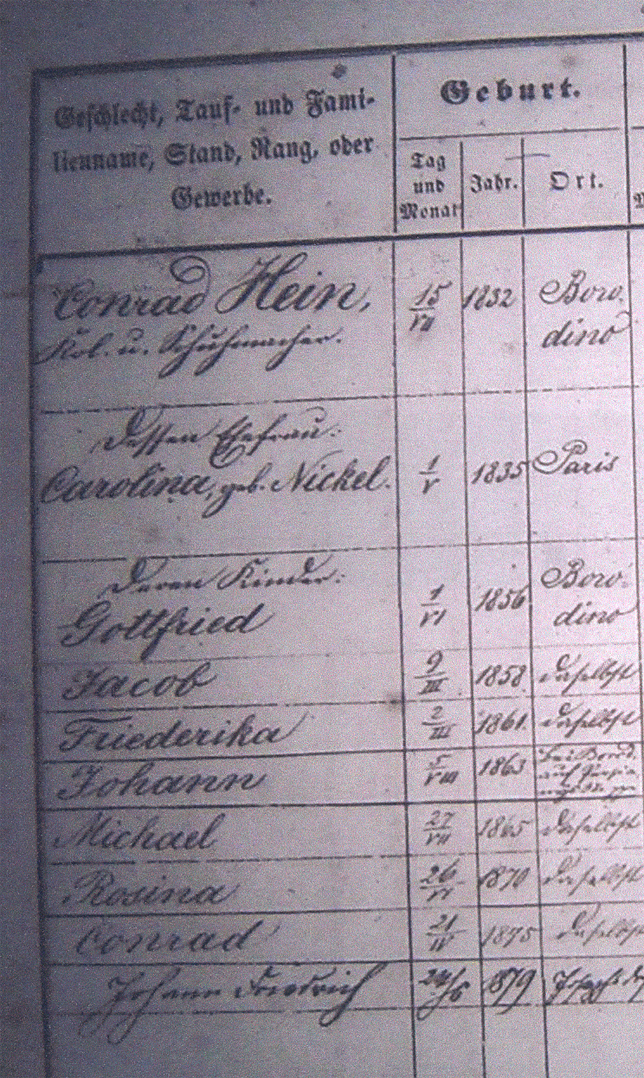 Geschlecht, Tauf- und Fami-
lienname, Stand, Rang, oder
Gewerbe.
Geburt.
Tag
und
Monat
Jahr.
Ort.
Conrad Hein,
Kol. u. Schuhmacher.
15/VII
1832
Boro-
dino
Dessen Ehefrau:
Carolina, geb. Nickel.
1/V
1835
Paris
Deren Kinder:
Gottfried
1/VI
1856
Boro-
dino
Jacob
9/III
1858
daselbst
Friederika
2/III
1861
daselbst
Johann
5/VIII
1863
bei Borod.
auf
Michael
27/VII
1865
daselbst
Rosina
26/VI
1870
daselbst
Conrad
21/IV
1875
daselbst
Johann Friedrich
24/6
1879